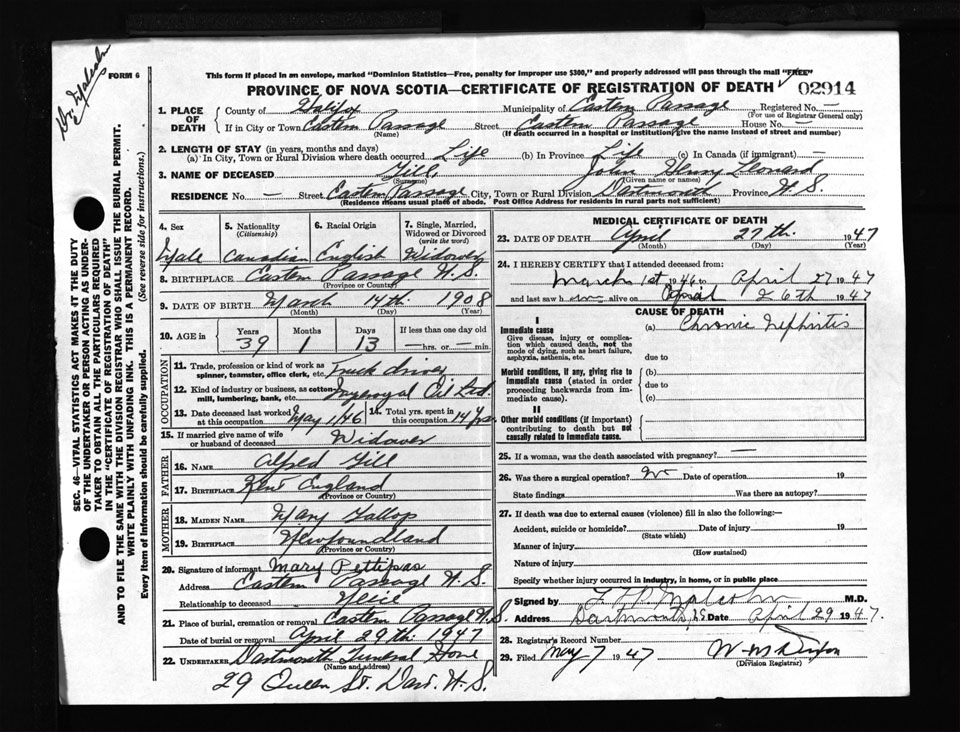 Dr Malcolm
FORM 6
This form if placed in an envelope, marked "Dominion Statistics—Free, penalty for improper use $300," and properly addressed will pass through the mail "FREE"
PROVINCE OF NOVA SCOTIA—CERTIFICATE OF REGISTRATION OF DEATH
02914
SEC. 46—VITAL STATISTICS ACT MAKES IT THE DUTY
OF THE UNDERTAKER OR PERSON ACTING AS UNDER-
TAKER TO OBTAIN ALL THE PARTICULARS REQUIRED
IN THE "CERTIFICATE OF REGISTRATION OF DEATH"
AND TO FILE THE SAME WITH THE DIVISION REGISTRAR WHO SHALL ISSUE THE BURIAL PERMIT.
WRITE PLAINLY WITH UNFADING INK. THIS IS A PERMANENT RECORD.
Every item of information should be carefully supplied. (See reverse side for instructions.)
1. PLACE OF DEATH
County of Halifax Municipality of Eastern Passage Registered No. —
(For use of Registrar General only)
If in City or Town Eastern Passage Street Eastern Passage House No. —
(Name) (If death occurred in a hospital or institution, give the name instead of street and number)
2. LENGTH OF STAY (in years, months and days)
(a) In City, Town or Rural Division where death occurred Life (b) In Province Life (c) In Canada (if immigrant) —
3. NAME OF DECEASED Gill, John Henry Leonard
(Surname) (Given name or names)
RESIDENCE No. — Street Eastern Passage City, Town or Rural Division Dartmouth Province N.S.
(Residence means usual place of abode. Post Office Address for residents in rural parts not sufficient)
4. Sex
Male
5. Nationality
(Citizenship)
Canadian
6. Racial Origin
English
7. Single, Married, Widowed or Divorced
(write the word)
Widower
8. BIRTHPLACE Eastern Passage N.S.
(Province or Country)
9. DATE OF BIRTH March 14th. 1908
(Month) (Day) (Year)
10. AGE in
Years Months Days If less than one day old
39 1 13 — hrs. or — min.
OCCUPATION
11. Trade, profession or kind of work as spinner, teamster, office clerk, etc. Truck driver
12. Kind of industry or business, as cotton-mill, lumbering, bank, etc. Imperial Oil Ltd.
13. Date deceased last worked at this occupation May 1/46
14. Total yrs. spent in this occupation 14 Yrs.
15. If married give name of wife or husband of deceased Widower
FATHER
16. NAME Alfred Gill
17. BIRTHPLACE Kent England
(Province or Country)
MOTHER
18. MAIDEN NAME Mary Gallop
19. BIRTHPLACE Newfoundland
(Province or Country)
20. Signature of informant Mary Pettipas
Address Eastern Passage N.S.
Relationship to deceased
21. Place of burial, cremation or removal Eastern Passage N.S.
Date of burial or removal April 29th. 1947
22. UNDERTAKER Dartmouth Funeral Home
(Name and address)
29 Queen St. Dart. N.S.
MEDICAL CERTIFICATE OF DEATH
23. DATE OF DEATH April 27th. 1947
(Month) (Day) (Year)
24. I HEREBY CERTIFY that I attended deceased from:
March 1st 1946 to April 27 1947
and last saw him alive on April 26th 1947
CAUSE OF DEATH
I
Immediate cause
Give disease, injury or complication which caused death, not the mode of dying, such as heart failure, asphyxia, asthenia, etc.
(a) Chronic Nephritis
due to
Morbid conditions, if any, giving rise to immediate cause (stated in order proceeding backwards from immediate cause).
(b)
due to
(c)
II
Other morbid conditions (if important) contributing to death but not causally related to immediate cause.
25. If a woman, was the death associated with pregnancy? —
26. Was there a surgical operation? No Date of operation 19
State findings Was there an autopsy?
27. If death was due to external causes (violence) fill in also the following:—
Accident, suicide or homicide? Date of injury 19
(State which)
Manner of injury
(How sustained)
Nature of injury
Specify whether injury occurred in industry, in home, or in public place
Signed by Malcolm M.D.
Address Dartmouth, NS Date April 29 1947.
28. Registrar's Record Number
29. Filed May 7 1947
W. M. Dixon
(Division Registrar)